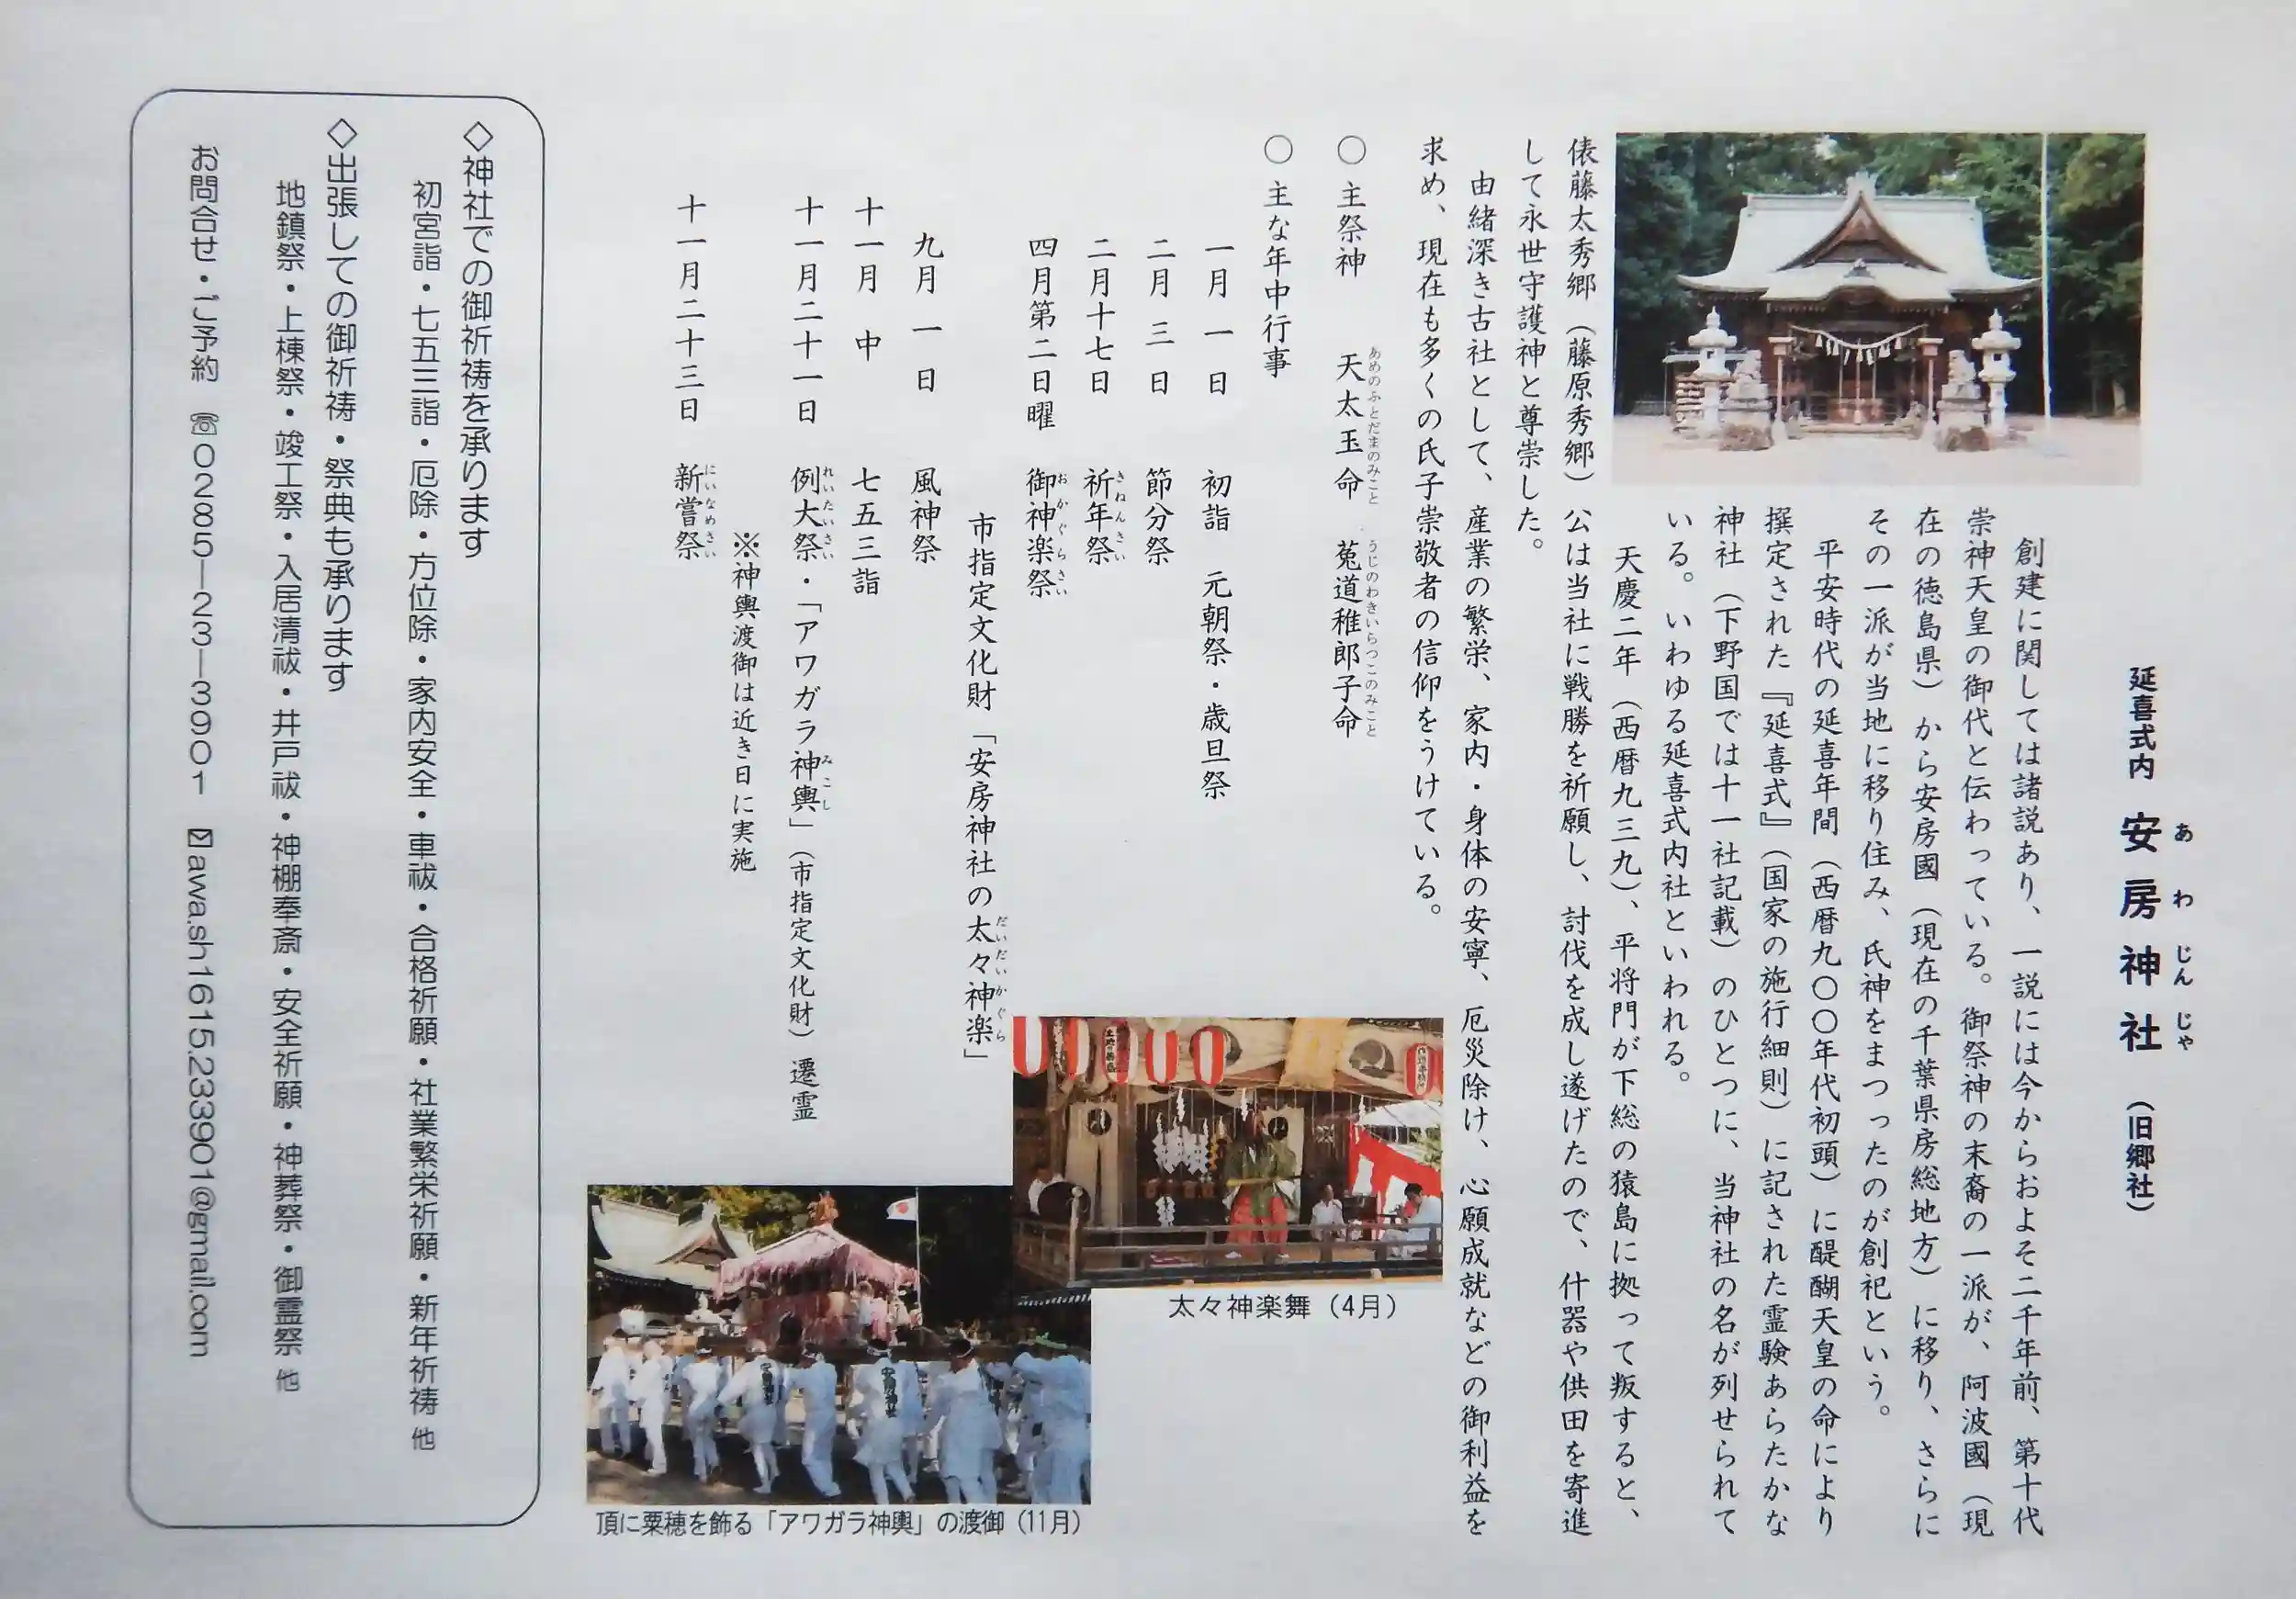 延喜式内 安房神社 (旧郷社)
あわじんじゃ
創建に関しては諸説あり、一説には今からおよそ二千年前、第十代
崇神天皇の御代と伝わっている。御祭神の末裔の一派が、阿波國（現
在の徳島県）から安房國（現在の千葉県房総地方）に移り、さらに
その一派が当地に移り住み、氏神をまつったのが創祀という。
平安時代の延喜年間（西暦九〇〇年代初頭）に醍醐天皇の命により
撰定された『延喜式』（国家の施行細則）に記された霊験あらたかな
神社（下野国では十一社記載）のひとつに、当神社の名が列せられて
いる。いわゆる延喜式内社といわれる。
天慶二年（西暦九三九）、平将門が下総の猿島に拠って叛すると、
俵藤太秀郷（藤原秀郷）公は当社に戦勝を祈願し、討伐を成し遂げたので、什器や供田を寄進
して永世守護神と尊崇した。
由緒深き古社として、産業の繁栄、家内・身体の安寧、厄災除け、心願成就などの御利益を
求め、現在も多くの氏子崇敬者の信仰をうけている。
〇 主祭神 天太玉命 菟道稚郎子命
あめのふとだまのみこと うじのわきいらつこのみこと
〇 主な年中行事
一月 一 日 初詣 元朝祭・歳旦祭
二月 三 日 節分祭
二月十七日 祈年祭
きねんさい
四月第二日曜 御神楽祭
おかぐらさい
市指定文化財「安房神社の太々神楽」
だいだいかぐら
九月 一 日 風神祭
十一月 中 七五三詣
十一月二十一日 例大祭・「アワガラ神輿」（市指定文化財）遷霊
れいたいさい みこし
※神輿渡御は近き日に実施
十一月二十三日 新嘗祭
にいなめさい
太々神楽舞（4月）
頂に粟穂を飾る「アワガラ神輿」の渡御（11月）
◇神社での御祈祷を承ります
初宮詣・七五三詣・厄除・方位除・家内安全・車祓・合格祈願・社業繁栄祈願・新年祈祷 他
◇出張しての御祈祷・祭典も承ります
地鎮祭・上棟祭・竣工祭・入居清祓・井戸祓・神棚奉斎・安全祈願・神葬祭・御霊祭 他
お問合せ・ご予約 ☏0285―23―3901 ✉awa.sh1615.233901@gmail.com